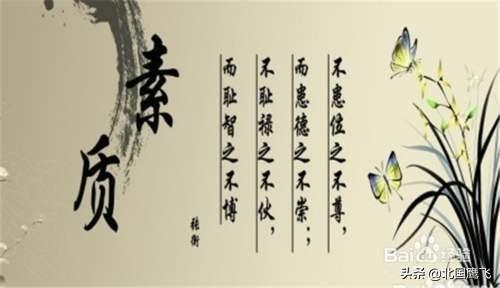 素质
不患位之不尊，
而患德之不崇；，
不耻禄之不伙，
而耻智之不博
张衡
Baidu经验
头条 @北国鹰飞